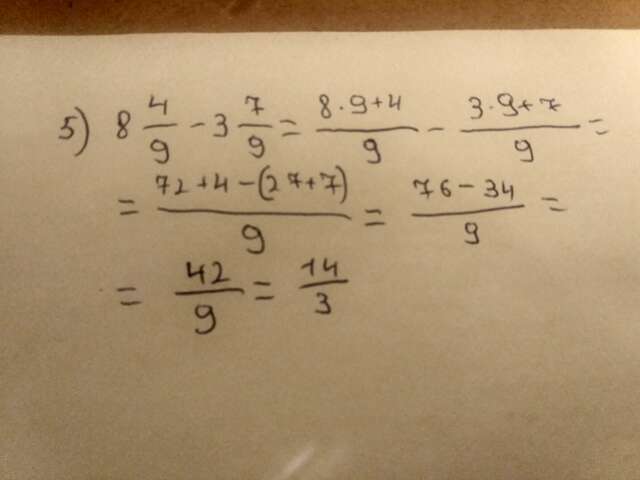 5) 8 4/9 - 3 7/9 = (8·9+4)/9 - (3·9+7)/9 =
= (72+4-(27+7))/9 = (76-34)/9 =
= 42/9 = 14/3